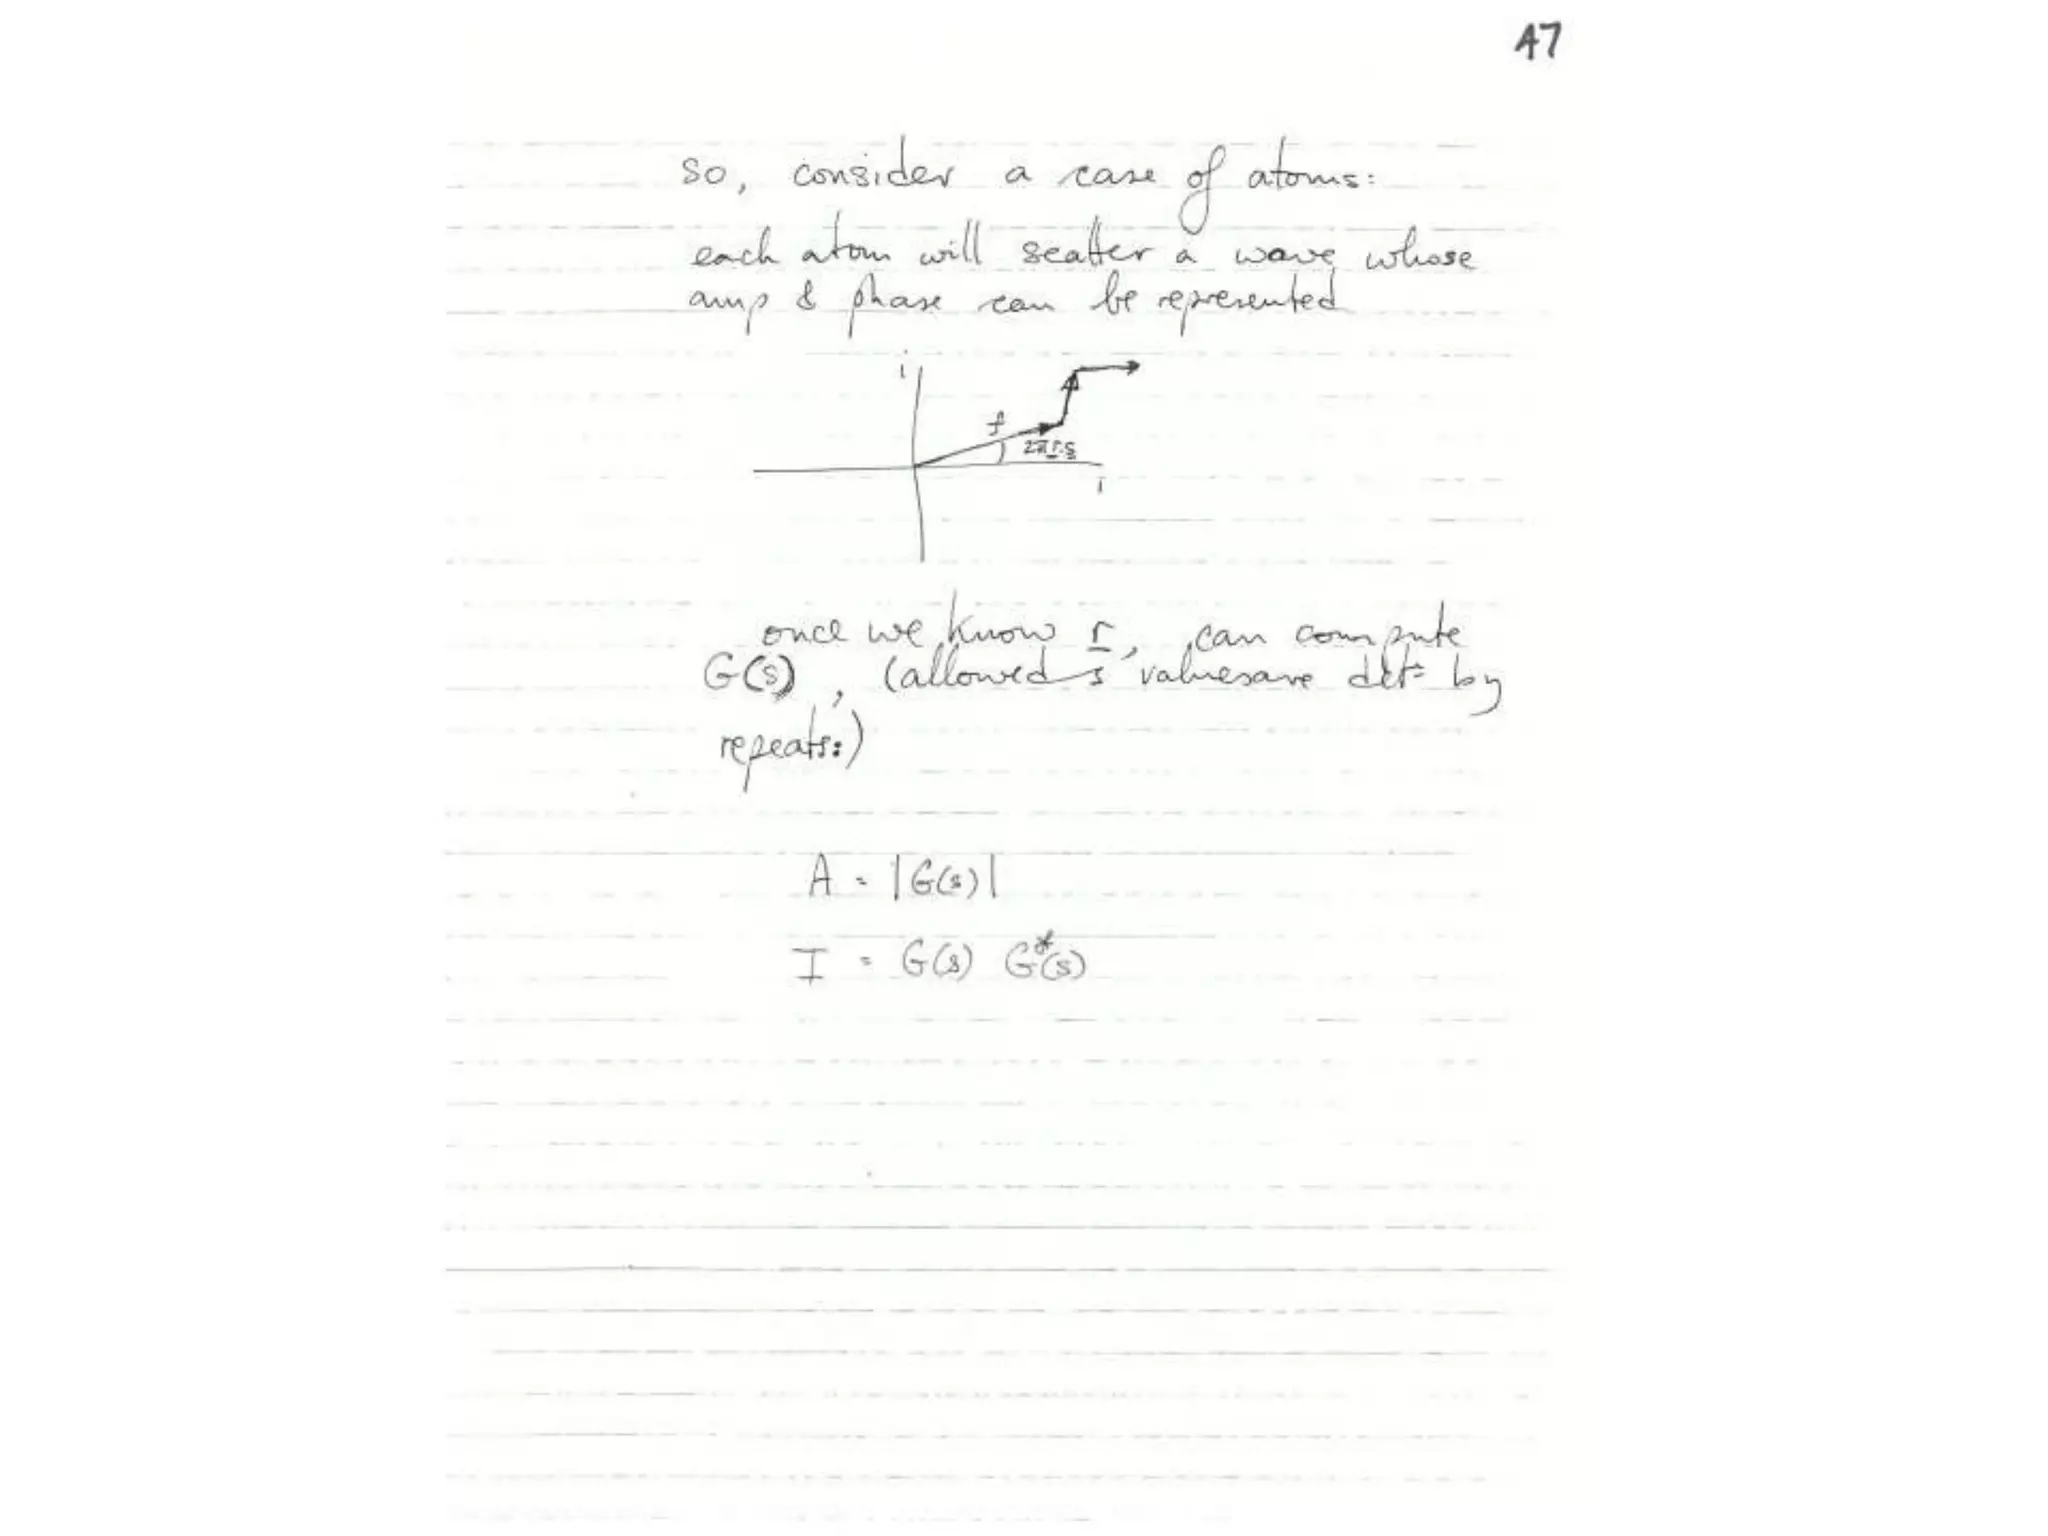 47
so, consider a case of atoms:
each atom will scatter a wave whose
amp & phase can be represented
i
f
2π r.s
1
once we know r, can compute
G(s), (allowed s values are det= by
repeats:)
A = |G(s)|
I = G(s) G*(s)